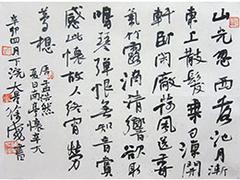 山光忽西落池月漸
東上散髮乘夕涼開
軒臥閑敞荷風送香
氣竹露滴清響欲取
鳴琴彈恨無知音賞
感此懷故人終宵勞
夢想 唐孟浩然
夏日南亭懷辛大
辛卯四月下浣 書